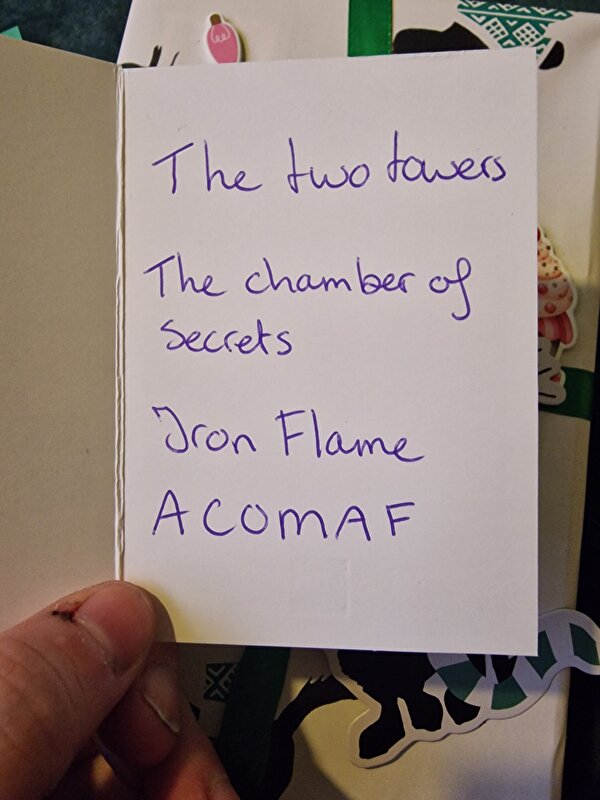 The two towers
The chamber of
secrets
Iron Flame
ACOMAF